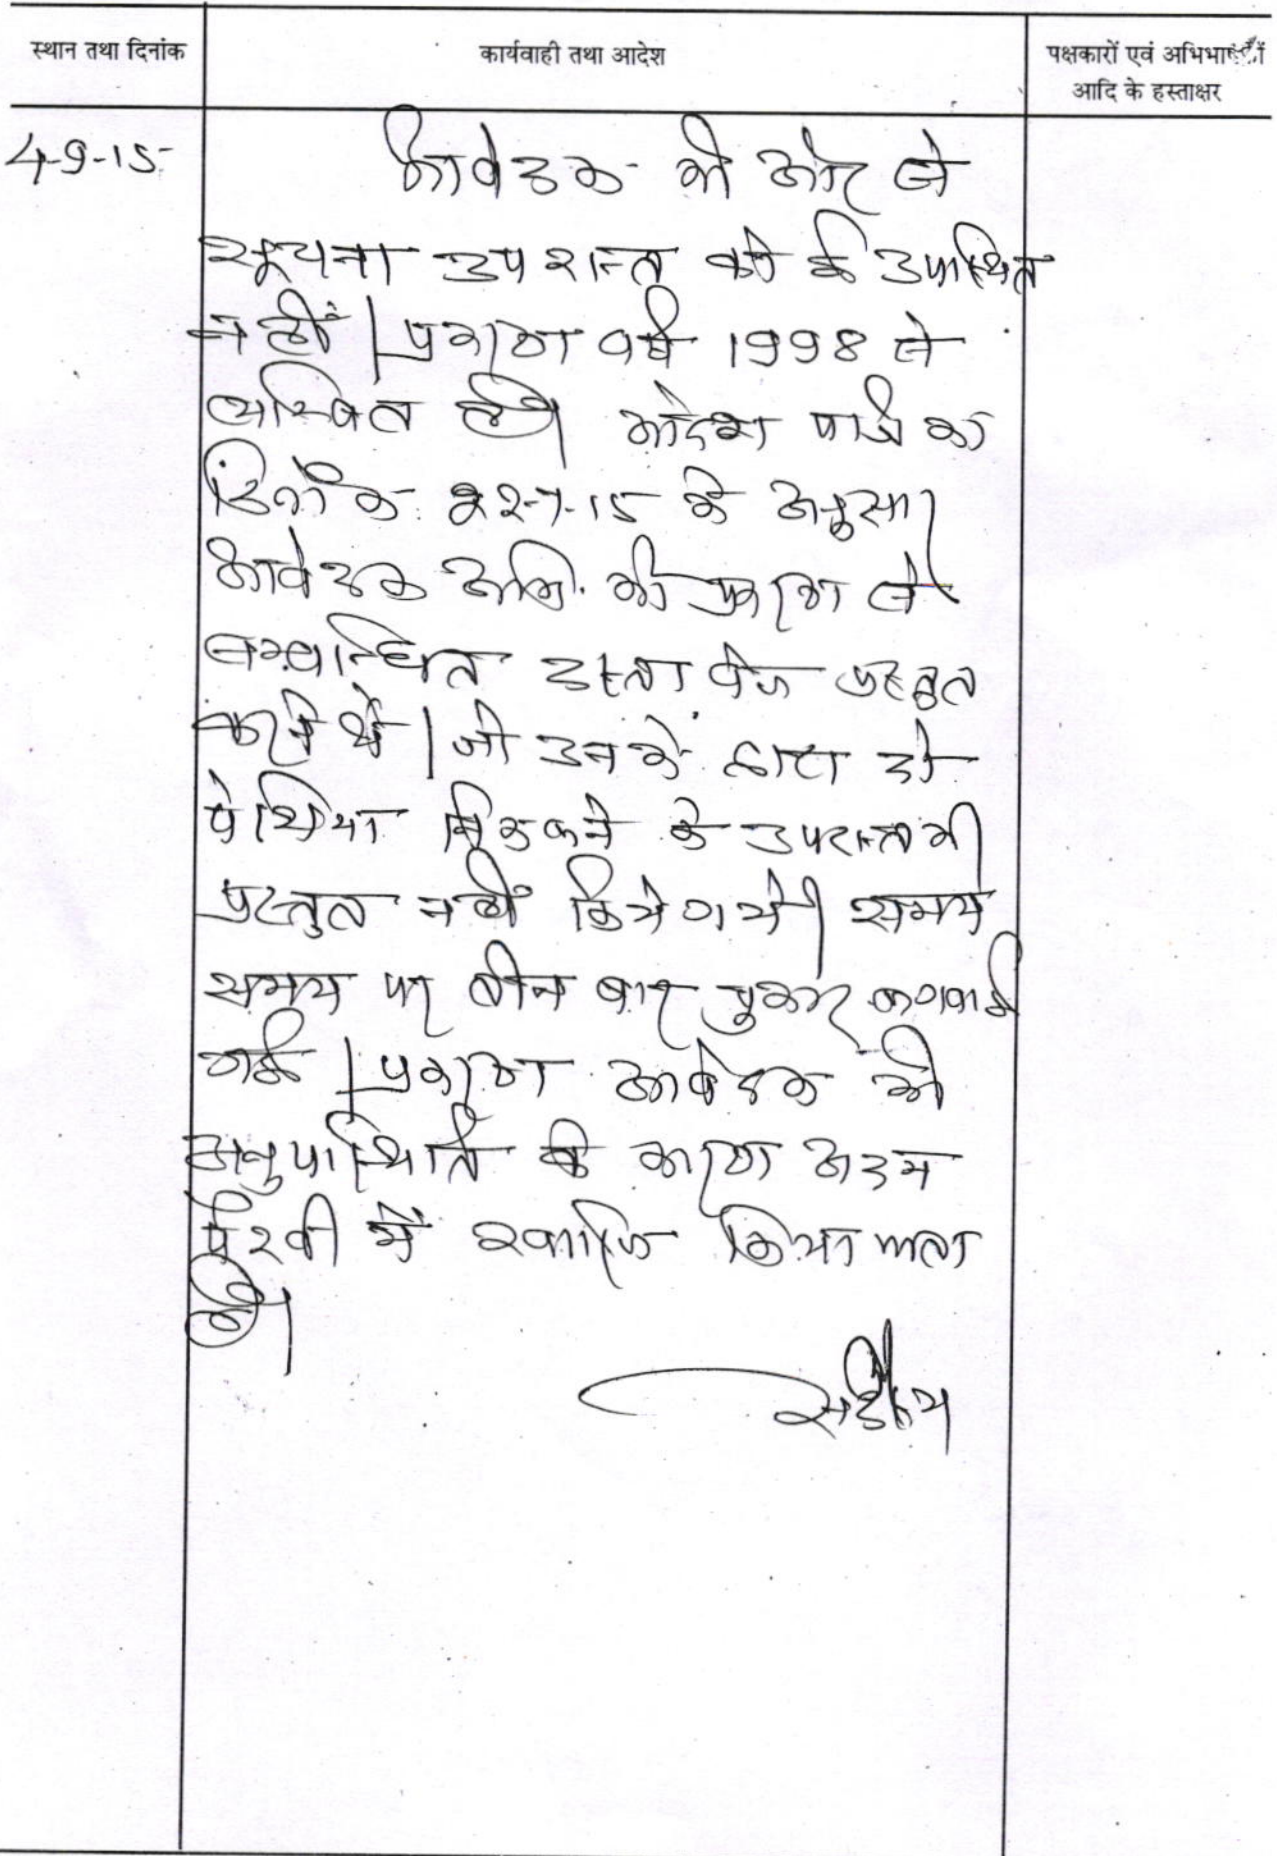 स्थान तथा दिनांक
कार्यवाही तथा आदेश
पक्षकारों एवं अभिभाषकों
आदि के हस्ताक्षर
4-9-15
आवेदक की ओर से
सूचना उपरान्त कोई उपस्थित
नहीं। प्रकरण वर्ष 1998 से
लम्बित है। आदेश पत्रिका
दिनांक 22-7-15 के अनुसार
आवेदक अभि. को प्रकरण से
सम्बन्धित दस्तावेज प्रस्तुत
करने थे। जो उनके द्वारा दो
पेशिया निकलने के उपरान्त भी
प्रस्तुत नहीं किये गये। समय
समय पर तीन बार पुकार करवाई
गई। प्रकरण आवेदक की
अनुपस्थिति के कारण अदम
पैरवी में खारिज किया जाता
है।
सदस्य